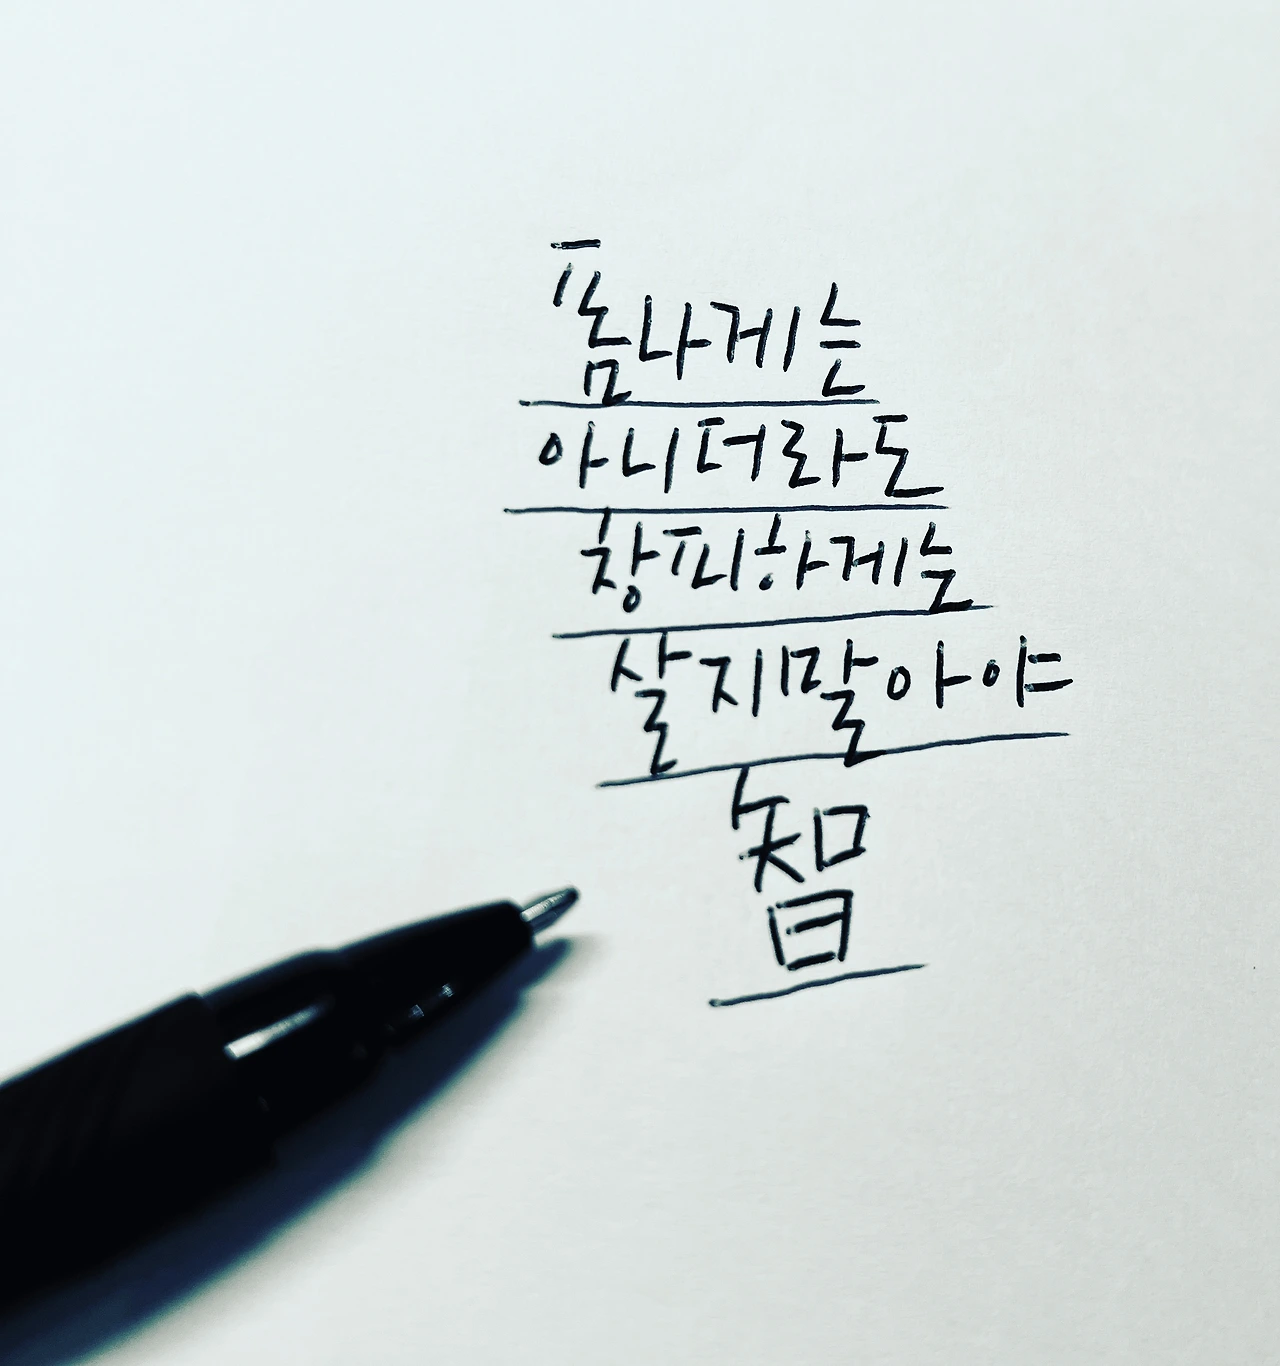 폼나게는
아니더라도
창피하게는
살지말아야
智